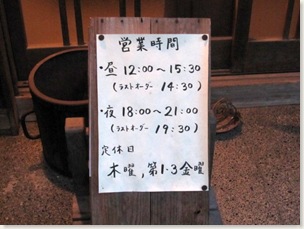 営業時間
・昼 12:00〜15:30
(ラストオーダー 14:30)
・夜 18:00〜21:00
(ラストオーダー 19:30)
定休日
木曜,第1・3金曜